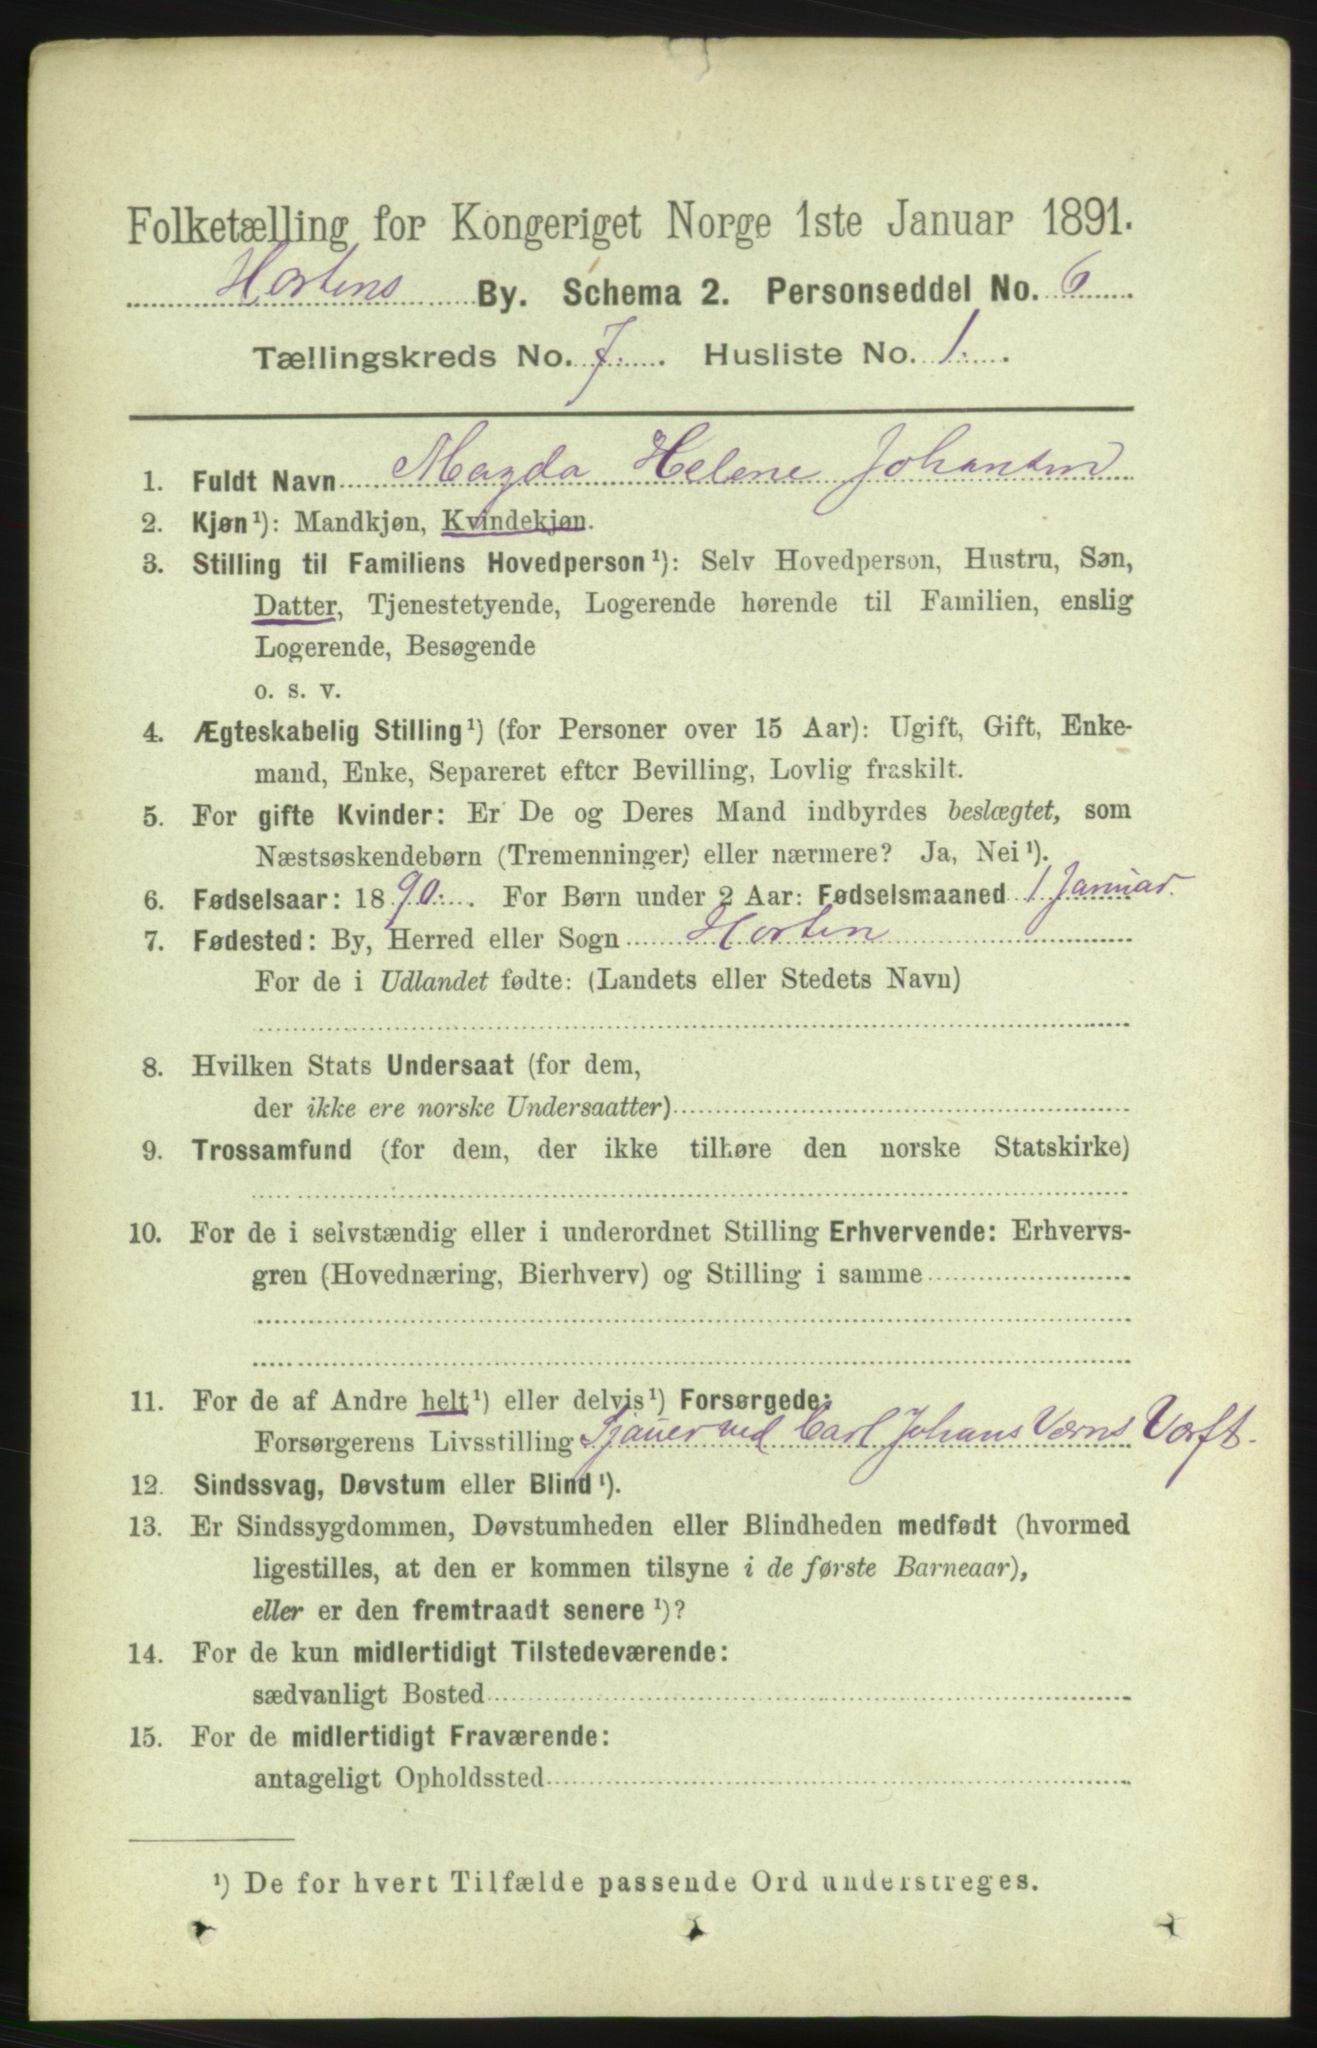 Folketælling for Kongeriget Norge 1ste Januar 1891.
Hortens By. Schema 2. Personseddel No. 6
Tællingskreds No. 7. Husliste No. 1.
1. Fuldt Navn Magda Helene Johansen
2. Kjøn¹): Mandkjøn, Kvindekjøn.
3. Stilling til Familiens Hovedperson¹): Selv Hovedperson, Hustru, Søn,
Datter, Tjenestetyende, Logerende hørende til Familien, enslig
Logerende, Besøgende
o. s. v.
4. Ægteskabelig Stilling¹) (for Personer over 15 Aar): Ugift, Gift, Enke-
mand, Enke, Separeret efter Bevilling, Lovlig fraskilt.
5. For gifte Kvinder: Er De og Deres Mand indbyrdes beslægtet, som
Næstsøskendebørn (Tremenninger) eller nærmere? Ja, Nei¹).
6. Fødselsaar: 1890. For Børn under 2 Aar: Fødselsmaaned 1 Januar.
7. Fødested: By, Herred eller Sogn Horten
For de i Udlandet fødte: (Landets eller Stedets Navn)
8. Hvilken Stats Undersaat (for dem,
der ikke ere norske Undersaatter)
9. Trossamfund (for dem, der ikke tilhøre den norske Statskirke)
10. For de i selvstændig eller i underordnet Stilling Erhvervende: Erhvervs-
gren (Hovednæring, Bierhverv) og Stilling i samme
11. For de af Andre helt¹) eller delvis¹) Forsørgede:
Forsørgerens Livsstilling Sjauer ved Carl Johans Værns Værft.
12. Sindssvag, Døvstum eller Blind¹).
13. Er Sindssygdommen, Døvstumheden eller Blindheden medfødt (hvormed
ligestilles, at den er kommen tilsyne i de første Barneaar),
eller er den fremtraadt senere¹)?
14. For de kun midlertidigt Tilstedeværende:
sædvanligt Bosted
15. For de midlertidigt Fraværende:
antageligt Opholdssted
¹) De for hvert Tilfælde passende Ord understreges.